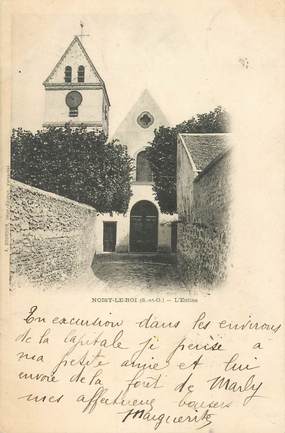 NOISY-LE-ROI (S.-et-O.) — L'Eglise
En excursion dans les environs
de la capitale je pense à
ma petite amie et lui
envoie de la forêt de Marly
mes affectueux baisers
Marguerite